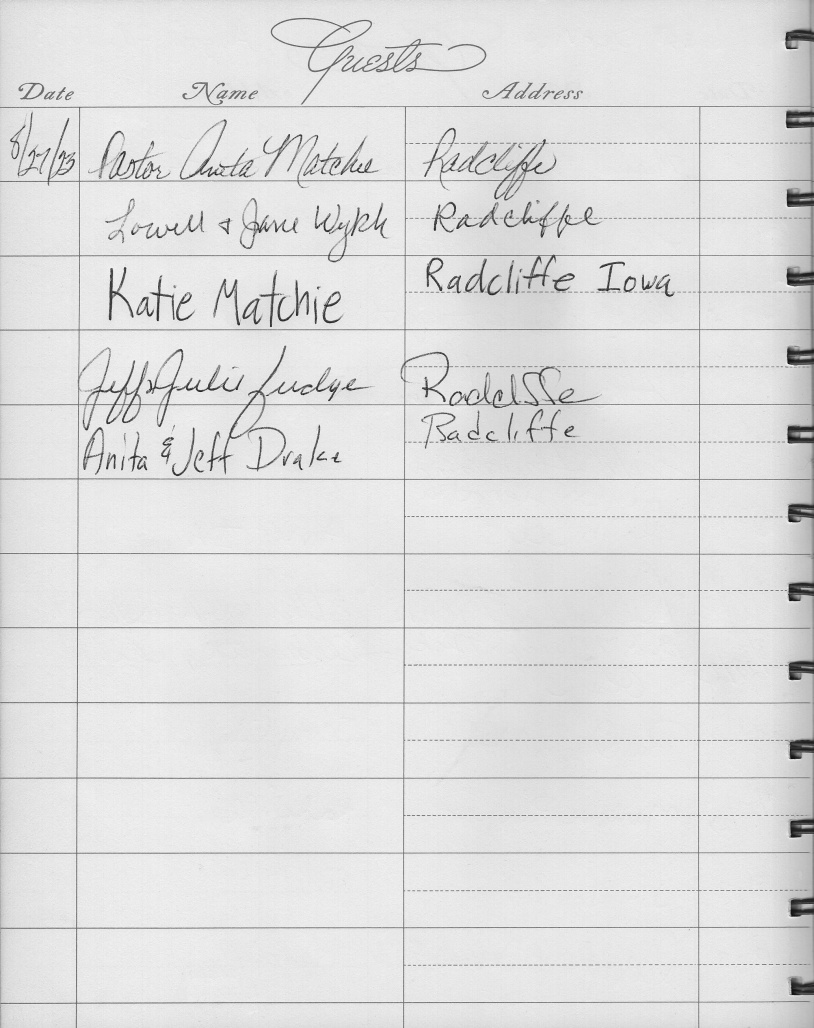 Guests
Date Name Address
8/27/23 Pastor Anita Matchie Radcliffe
Lowell & Jane Radcliffe
Katie Matchie Radcliffe Iowa
Jeff & Julie Radcliffe
Anita & Jeff Drake Radcliffe